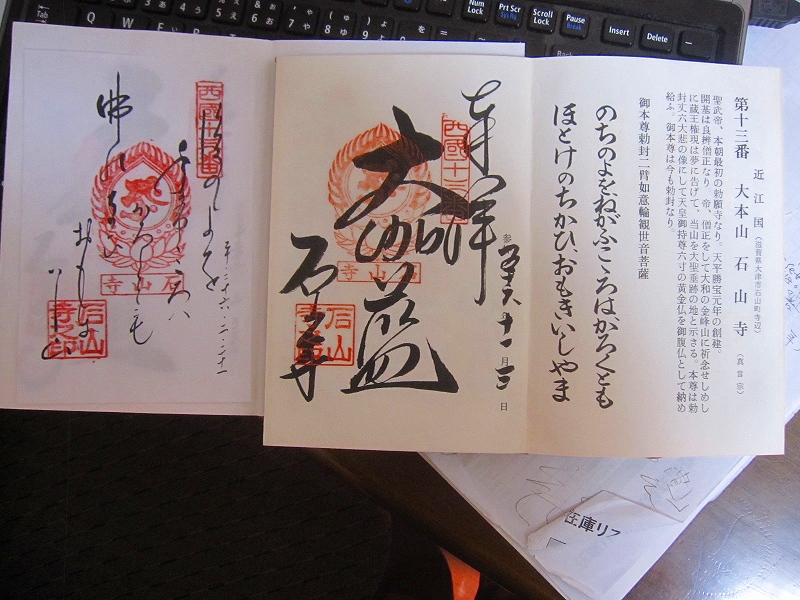 第十三番 大本山 石山寺
近江国
(滋賀県大津市石山町寺辺)
(真言宗)
聖武帝、本朝最初の勅願寺なり。天平勝宝元年の創建。
開基は良辨僧正なり 帝、僧正をして大和の金峰山に祈念せしめし
に蔵王権現は夢に告げて、当山を大聖垂跡の地と示さる。本尊は勅
封丈六大悲の像にして天皇御持尊六寸の黄金仏を御腹仏として納め
給ふ。御本尊は今も勅封なり。
御本尊勅封二臂如意輪観世音菩薩
のちのよをねがふこゝろはかろくとも
ほとけのちかひおもきいしやま
奉拝
西國十三番
大伽藍
石山寺
石山寺
月
日
西國十三番
のちのよを
かろくとも
佛のちかひ
おもき
石山寺
石山寺之印
在庫リス
Num Lock
Prt Scr
Sys Rq
Scroll Lock
Pause
Break
Insert
Delete
Back
Tab
Q
W
E
R